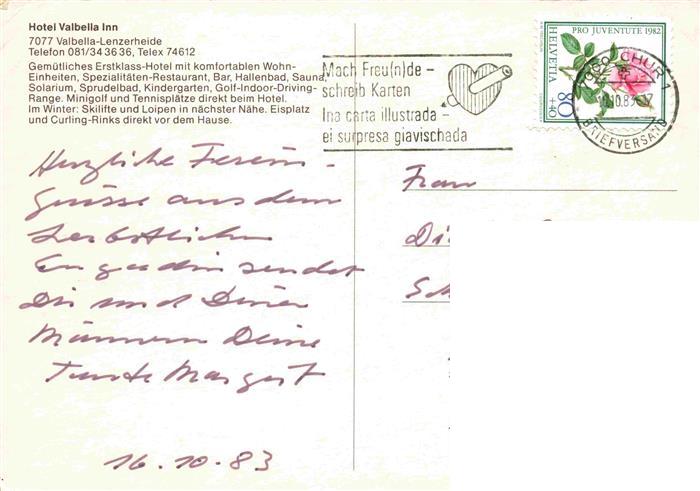 Hotel Valbella Inn
7077 Valbella-Lenzerheide
Telefon 081/34 36 36, Telex 74612
Gemütliches Erstklass-Hotel mit komfortablen Wohn-
Einheiten, Spezialitäten-Restaurant, Bar, Hallenbad, Sauna,
Solarium, Sprudelbad, Kindergarten, Golf-Indoor-Driving-
Range. Minigolf und Tennisplätze direkt beim Hotel.
Im Winter: Skilifte und Loipen in nächster Nähe. Eisplatz
und Curling-Rinks direkt vor dem Hause.
Mach Freu(n)de –
schreib Karten
Ina carta illustrada –
ei surpresa giavischada
PRO JUVENTUTE 1982
HELVETIA
80 +40
CHUR 1
BRIEFVERSAND
Herzliche Ferien-
grüsse aus dem
herbstlichen
Engadin sendet
Dir und Deinen
Männern Deine
Tante Margrit
16.10.83
Frau